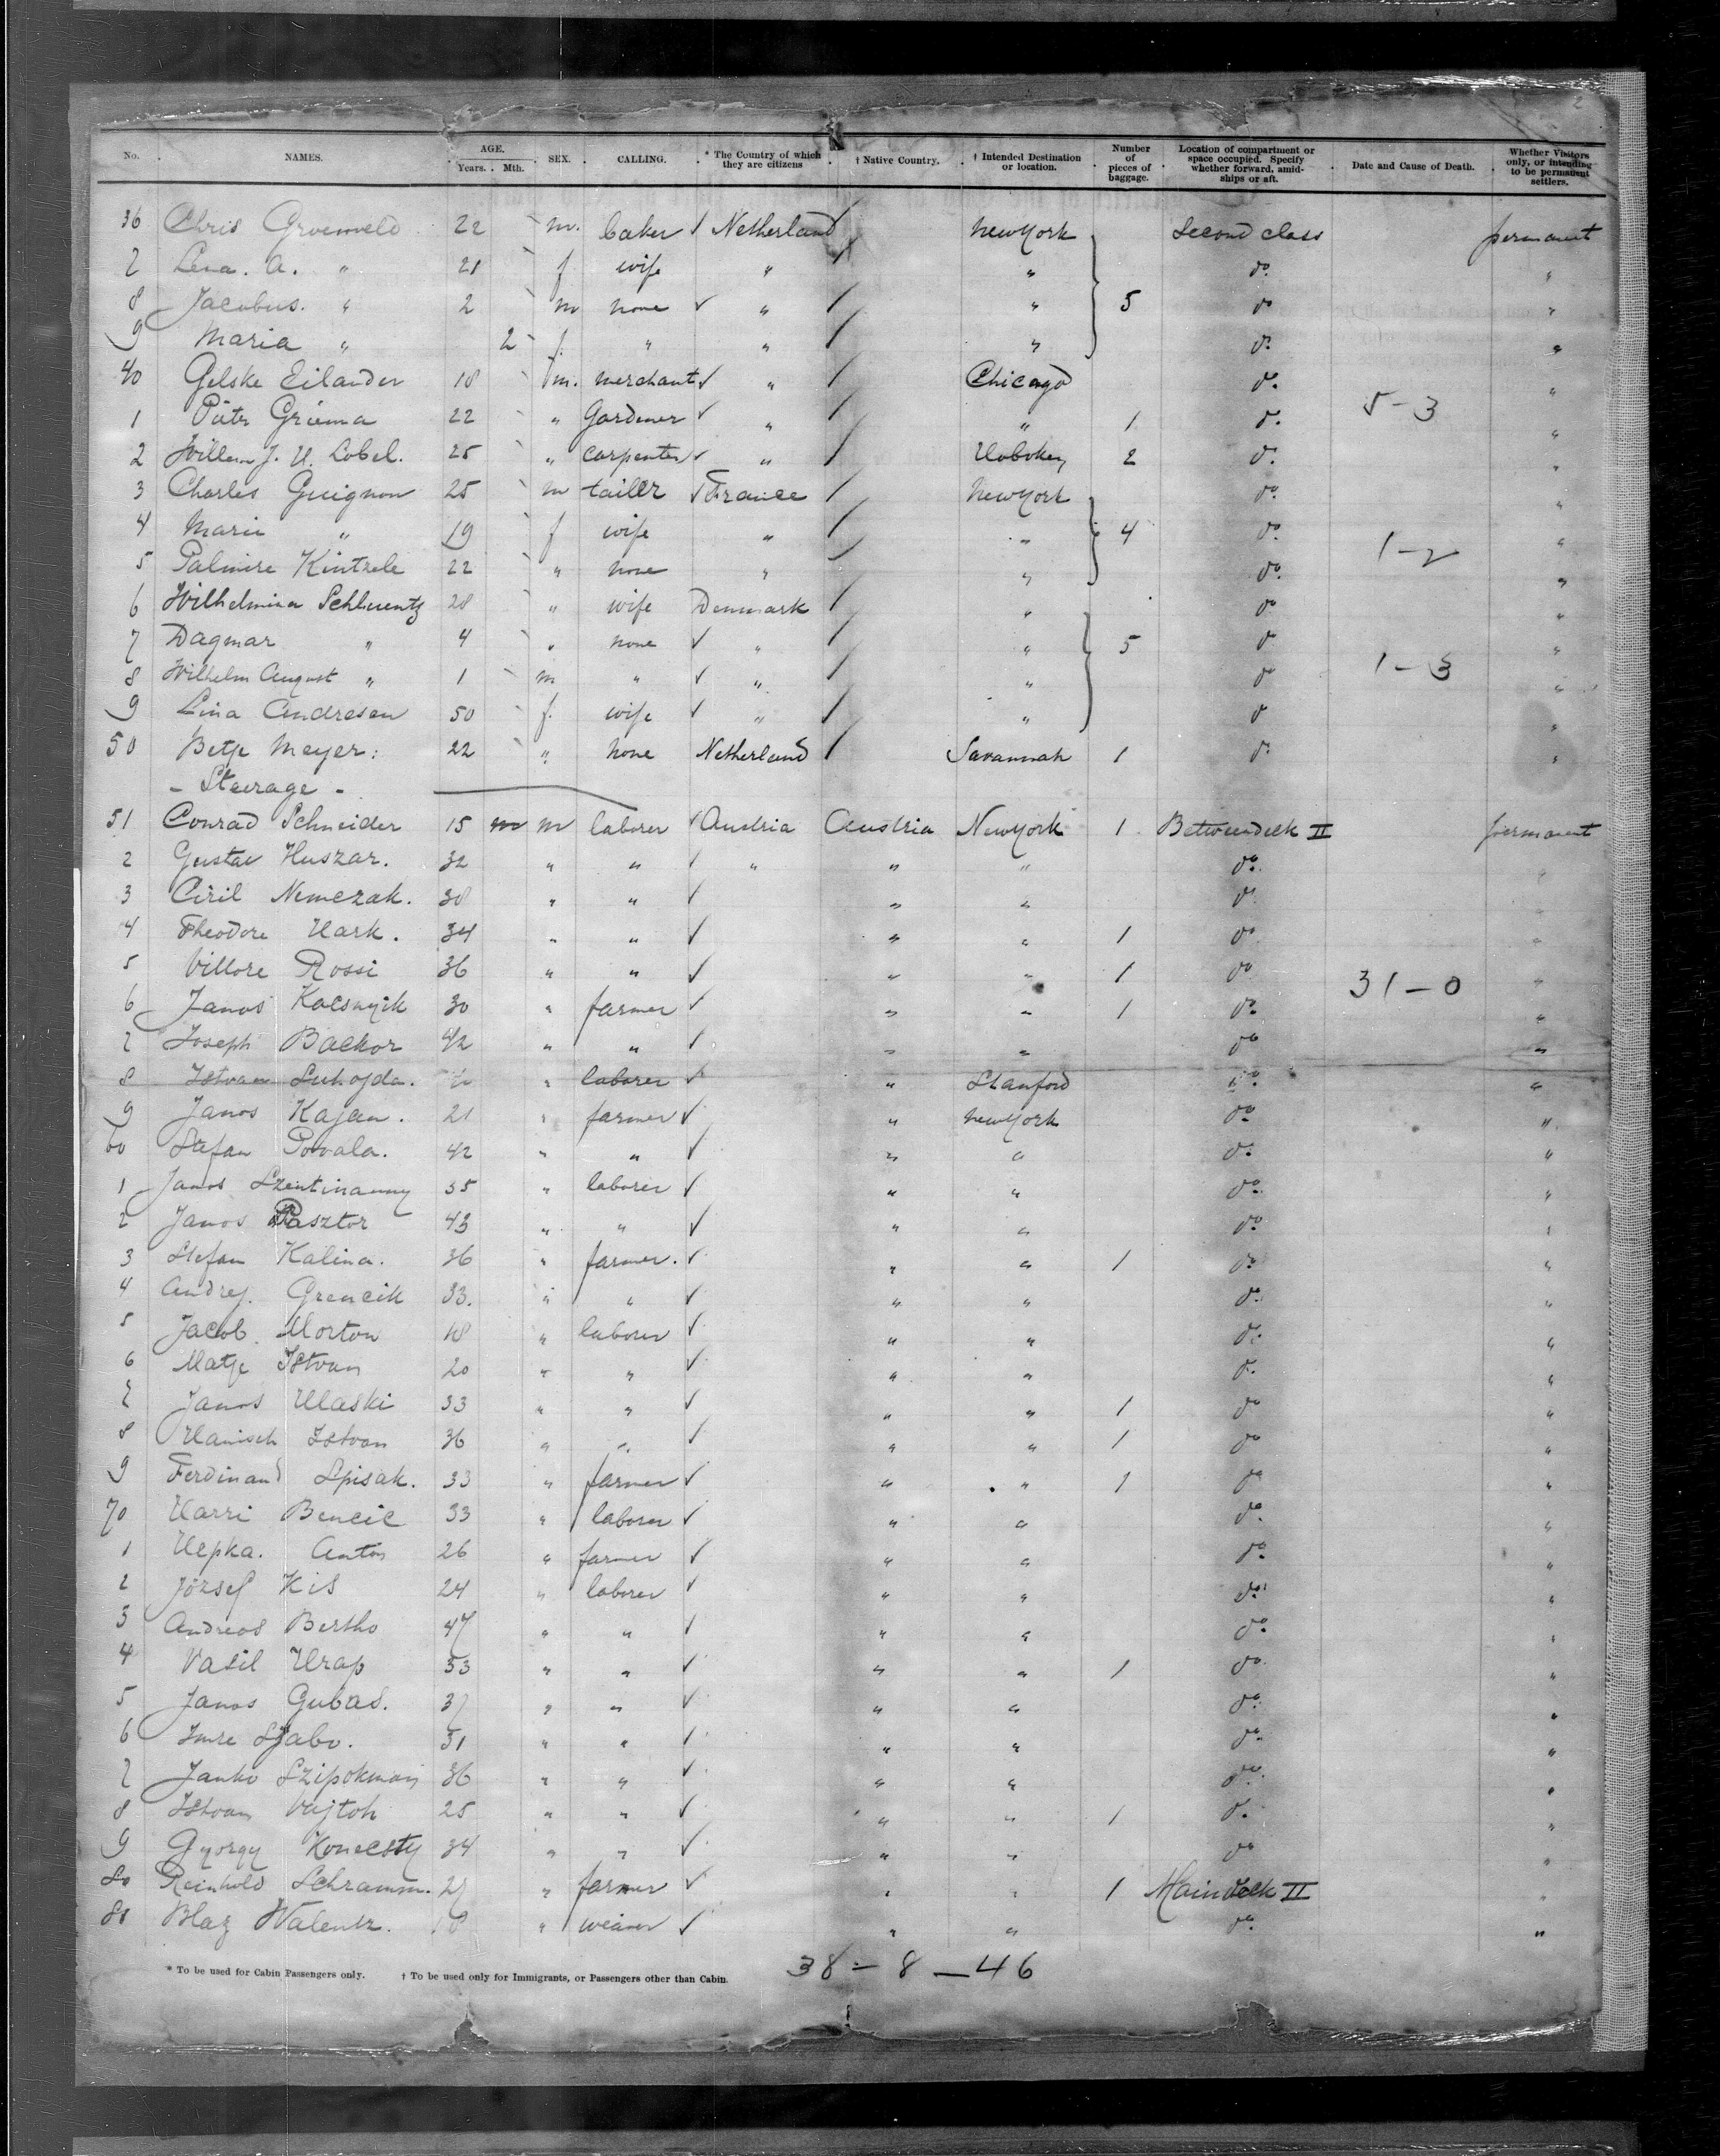 2
No. NAMES. AGE. Years. Mth. SEX. CALLING. * The Country of which they are citizens † Native Country. † Intended Destination or location. Number of pieces of baggage. Location of compartment or space occupied. Specify whether forward, amidships or aft. Date and Cause of Death. Whether Visitors only, or intending to be permanent settlers.
36 Chris Groenveld 22 m. baker Netherland New York Second class permanent
7 Lena. A. " 21 f wife " " do "
8 Jacobus. " 2 m none " " 5 do "
9 Maria " 2 f. " " " do "
40 Gelske Eilander 18 m. merchant " Chicago do "
1 Pieter Griema 22 " Gardener " " 1 do 5-3 "
2 Willem J. H. Lobel. 25 " carpenter " Hoboken 2 do "
3 Charles Guignon 25 m tailor France New York do "
4 Marie " 19 f wife " " 4 do 1-2 "
5 Palmire Kintzele 22 " none " " do "
6 Wilhelmina Schluentz 28 " wife Denmark " do "
7 Dagmar " 4 " none " " 5 do "
8 Wilhelm August " 1 m " " " do 1-3 "
9 Lina Andresen 50 f. wife " " do "
50 Betje Meyer: 22 " none Netherland Savannah 1 do "
- Steerage -
51 Conrad Schneider 15 m m laborer Austria Austria New York 1 Betweendeck II permanent
2 Gustav Huszar. 32 " " " " " do "
3 Ciril Nemczak. 38 " " " " do "
4 Theodore Hark. 34 " " " " 1 do "
5 Vittore Rossi 36 " " " " 1 do "
6 Janos Kolesnyik 30 " farmer " " 1 do 31-0 "
7 Joseph Backor 42 " " " " do "
8 Istvan Suhojda. " laborer " Stanford do "
9 Janos Kajan. 21 " farmer " New York do "
60 Stefan Povala. 42 " " " " do "
1 Janos Szentivanny 35 " laborer " " do "
2 Janos Pasztor 43 " " " " do "
3 Stefan Kalina. 36 " farmer. " " 1 do "
4 Andrej. Grencik 33. " " " " do "
5 Jacob Morton 18 " laborer " " do "
6 Matje Istvan 20 " " " " do "
7 Janos Ulaski 33 " " " " 1 do "
8 Hanisch Istvan 36 " " " " 1 do "
9 Ferdinand Spisak. 33 " farmer " " 1 do "
70 Harri Bencic 33 " laborer " " do "
1 Hepka. Anton 26 " farmer " " do "
2 József Kis 24 " laborer " " do "
3 Andreas Bertho 47 " " " " do "
4 Vasil Hrap 53 " " " " 1 do "
5 Janos Gubas. 37 " " " " do "
6 Imre Szabo. 31 " " " " do "
7 Janko Szipokman 36 " " " " do "
8 Istvan Vajtoh 25 " " " " 1 do "
9 Gyorgy Konecsty 34 " " " " do "
80 Reinhold Schramm. 27 " farmer " " 1 Maindeck II "
81 Blaz Walentz. 18 " weaver " " do "
* To be used for Cabin Passengers only. † To be used only for Immigrants, or Passengers other than Cabin. 38-8-46